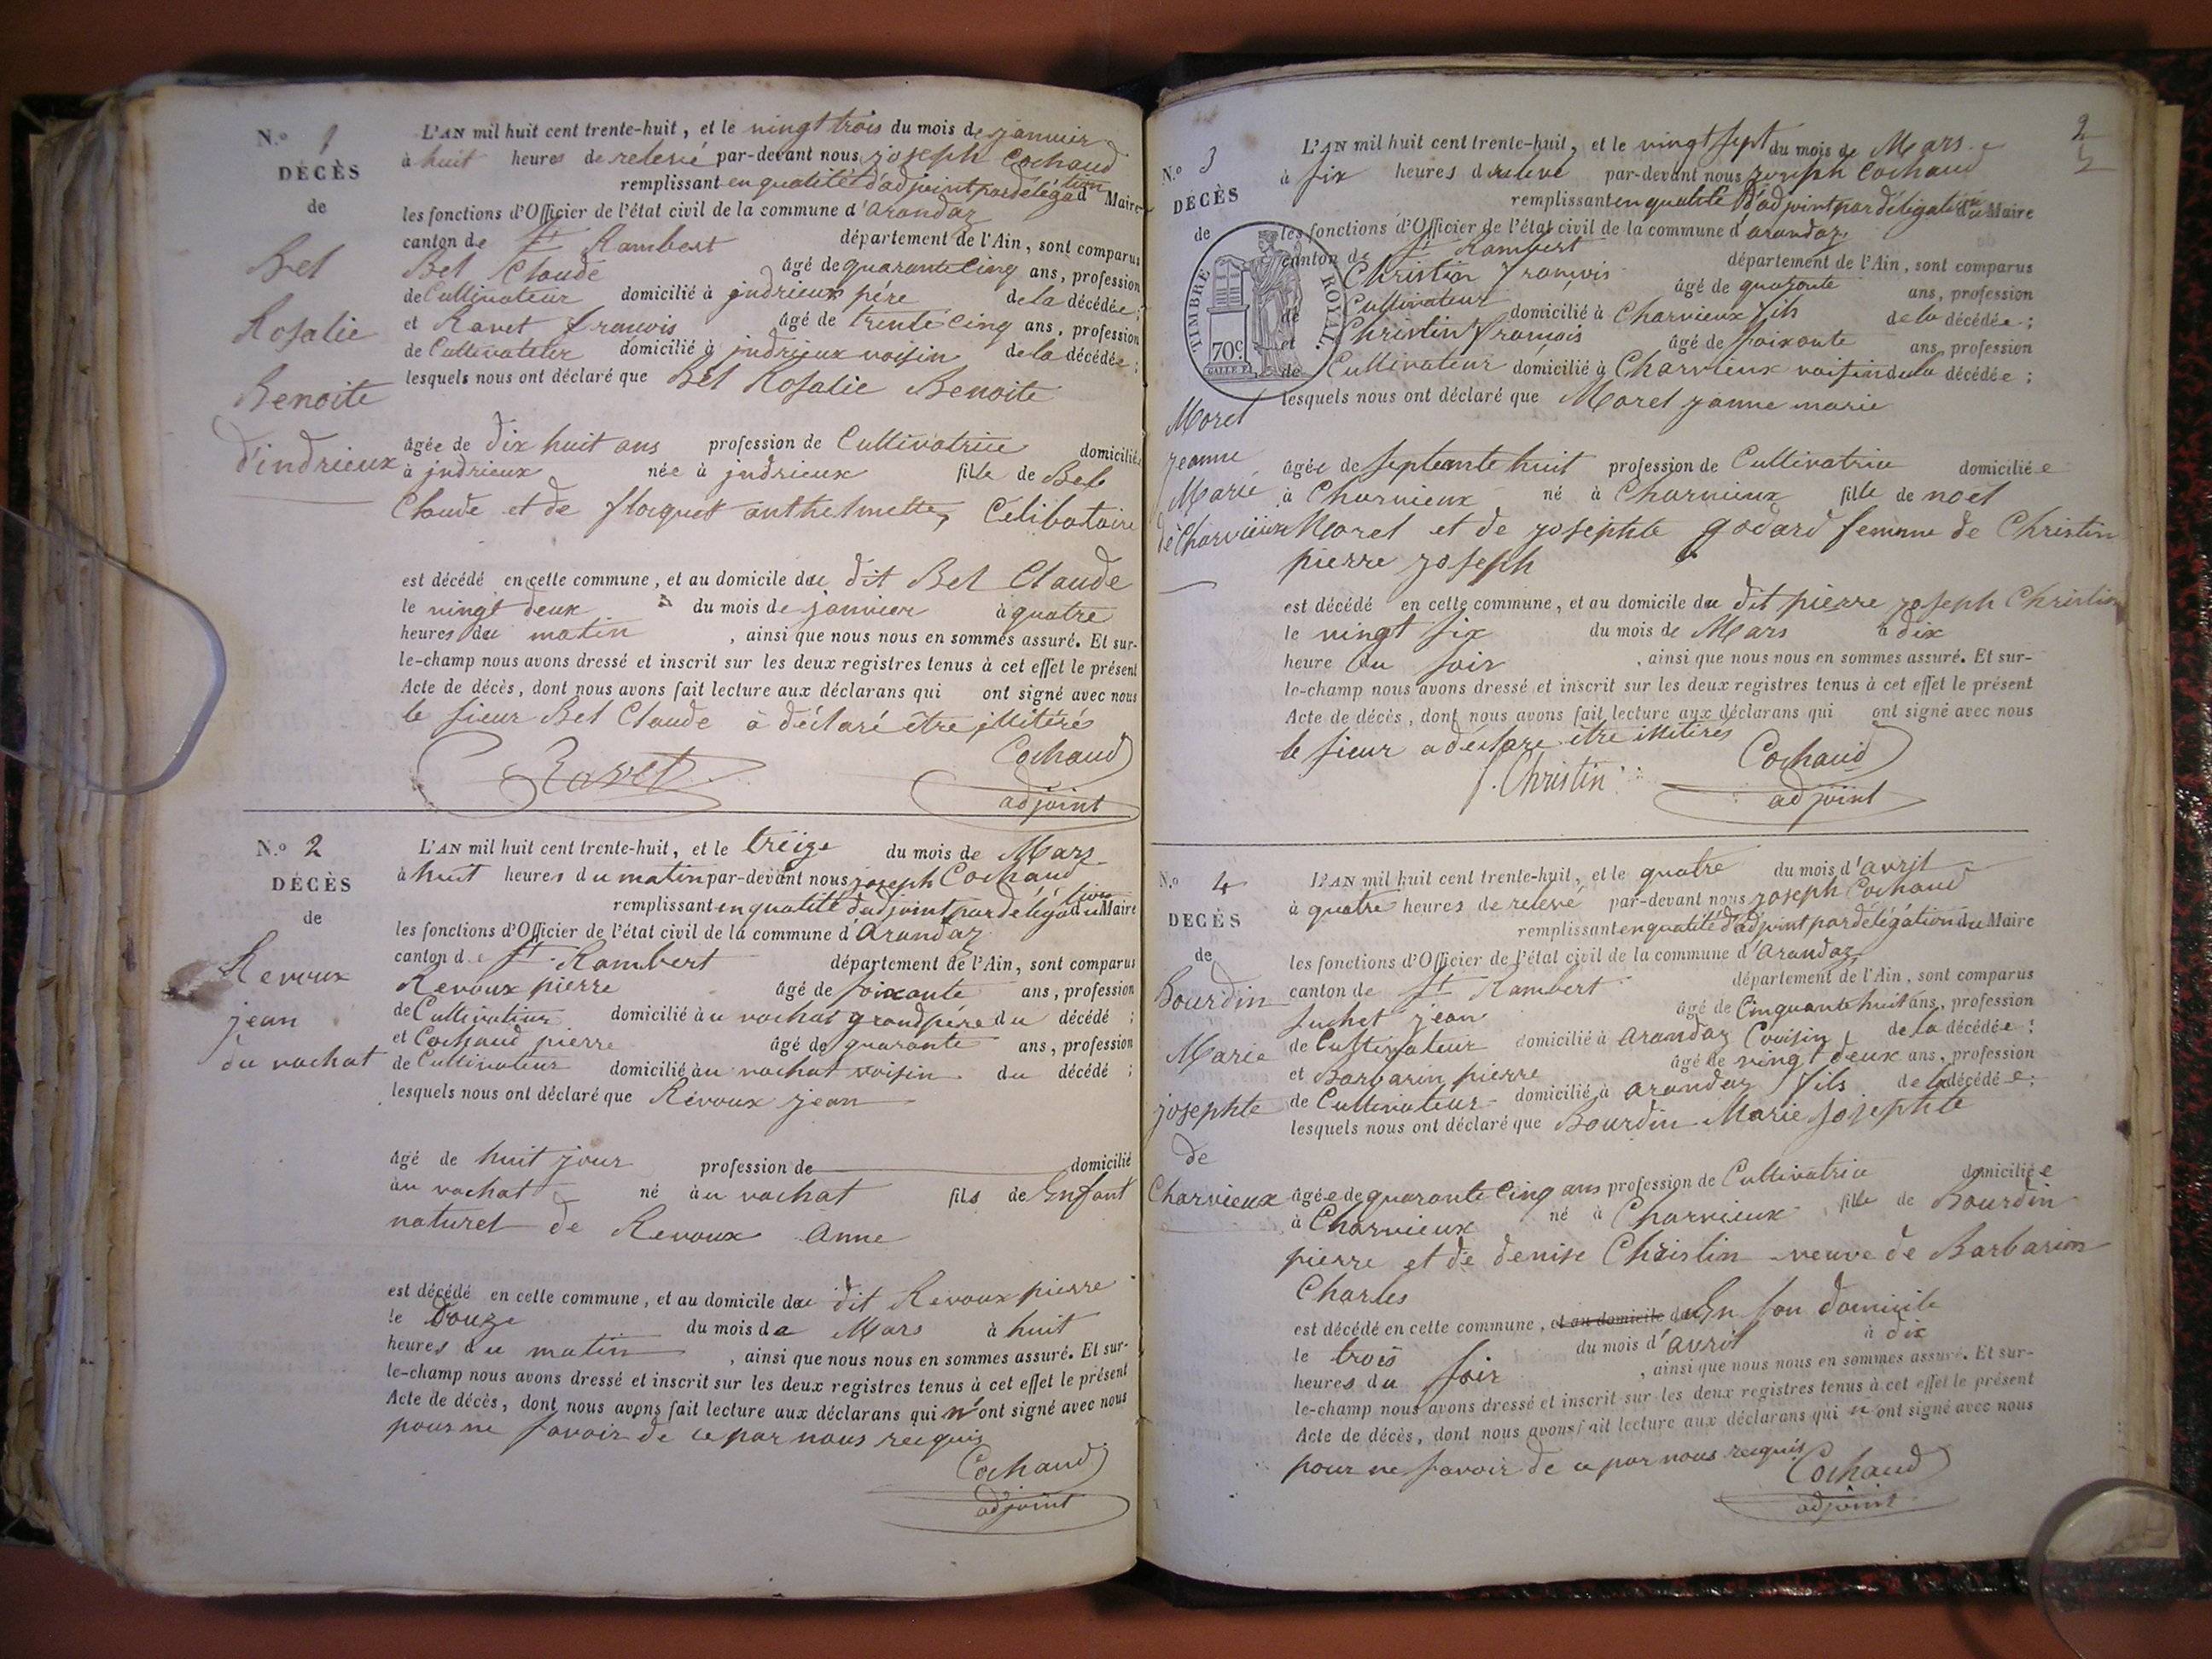 N.o 1
DÉCÈS
de
Bel
Rosalie
Benoite
d'indrieux
L'AN mil huit cent trente-huit, et le vingt trois du mois de janvier
à huit heures de relevé par-devant nous joseph Cochaud
remplissant en qualité d'adjoint par délégation d Maire
les fonctions d'Officier de l'état civil de la commune d'arandaz
canton de St Rambert département de l'Ain, sont comparus
Bel Claude âgé de quarante cinq ans, profession
de Cultivateur domicilié à jndrieux père de la décédée;
et Ravet françois âgé de trente cinq ans, profession
de Cultivateur domicilié à jndrieux voisin de la décédée;
lesquels nous ont déclaré que Bel Rosalie Benoite
âgée de dix huit ans profession de Cultivatrice domicilié
à jndrieux née à jndrieux fille de Bel
Claude et de floquet anthelmette, Célibataire
est décédé en cette commune, et au domicile du dit Bel Claude
le vingt deux du mois de janvier à quatre
heures du matin, ainsi que nous nous en sommes assuré. Et sur-
le-champ nous avons dressé et inscrit sur les deux registres tenus à cet effet le présent
Acte de décès, dont nous avons fait lecture aux déclarans qui ont signé avec nous
le sieur Bel Claude à déclaré être jllitéré
Ravet Cochaud
adjoint
N.o 2
DÉCÈS
de
Revoux
jean
du vachat
L'AN mil huit cent trente-huit, et le treize du mois de Mars
à huit heures du matin par-devant nous joseph Cochaud
remplissant en qualité d'adjoint par délégation du Maire
les fonctions d'Officier de l'état civil de la commune d'Arandaz
canton de St Rambert département de l'Ain, sont comparus
Revoux pierre âgé de soixante ans, profession
de Cultivateur domicilié àu vachat grand père du décédé;
et Cochaud pierre âgé de quarante ans, profession
de Cultivateur domicilié àu vachat voisin du décédé;
lesquels nous ont déclaré que Revoux jean
âgé de huit jour profession de domicilié
àu vachat né àu vachat fils de Enfant
naturel de Revoux Anne
est décédé en cette commune, et au domicile du dit Revoux pierre
le Douze du mois de Mars à huit
heures du matin, ainsi que nous nous en sommes assuré. Et sur-
le-champ nous avons dressé et inscrit sur les deux registres tenus à cet effet le présent
Acte de décès, dont nous avons fait lecture aux déclarans qui n'ont signé avec nous
pour ne savoir de ce par nous recquis
Cochaud
adjoint
2
N.o 3
DÉCÈS
de
TIMBRE ROYAL
70c
Moret
jeanne
Marie
de Charvieux
L'AN mil huit cent trente-huit, et le vingt sept du mois de Mars
à six heures de relevé par-devant nous joseph Cochaud
remplissant en qualité d'adjoint par délégation du Maire
les fonctions d'Officier de l'état civil de la commune d'arandaz
canton de St Rambert département de l'Ain, sont comparus
Christin françois âgé de quarante ans, profession
de Cultivateur domicilié à Charvieux fils de la décédée;
et Christin françois âgé de soixante ans, profession
de Cultivateur domicilié à Charvieux voisin de la décédée;
lesquels nous ont déclaré que Moret janne marie
âgée de septente huit profession de Cultivatrice domiciliée
à Charvieux né à Charvieux fille de noël
Moret et de josephte godard femme de Christin
pierre joseph
est décédé en cette commune, et au domicile du dit pierre joseph Christin
le vingt six du mois de Mars à dix
heure du soir, ainsi que nous nous en sommes assuré. Et sur-
le-champ nous avons dressé et inscrit sur les deux registres tenus à cet effet le présent
Acte de décès, dont nous avons fait lecture aux déclarans qui ont signé avec nous
le sieur a déclare être illitirés
f. Christin Cochaud
adjoint
N.o 4
DÉCÈS
de
Bourdin
Marie
josephte
de
Charvieux
L'AN mil huit cent trente-huit, et le quatre du mois d'avril
à quatre heures de relevé par-devant nous joseph Cochaud
remplissant en qualité d'adjoint par délégation du Maire
les fonctions d'Officier de l'état civil de la commune d'arandaz
canton de St Rambert département de l'Ain, sont comparus
Juchet jean âgé de Cinquante huit ans, profession
de Cultivateur domicilié à arandaz Cousin de la décédée;
et Barbarin pierre âgé de vingt deux ans, profession
de Cultivateur domicilié à arandaz fils de la décédée;
lesquels nous ont déclaré que Bourdin Marie Josephte
âgée de quarante Cinq ans profession de Cultivatrice domiciliée
à Charvieux né à Charvieux fille de Bourdin
pierre et de denise Christin veuve de Barbarin
Charles
est décédé en cette commune, et au domicile du En son domicile
le trois du mois d'avril à dix
heures du soir, ainsi que nous nous en sommes assuré. Et sur-
le-champ nous avons dressé et inscrit sur les deux registres tenus à cet effet le présent
Acte de décès, dont nous avons fait lecture aux déclarans qui n'ont signé avec nous
pour ne savoir de ce par nous recquis
Cochaud
adjoint